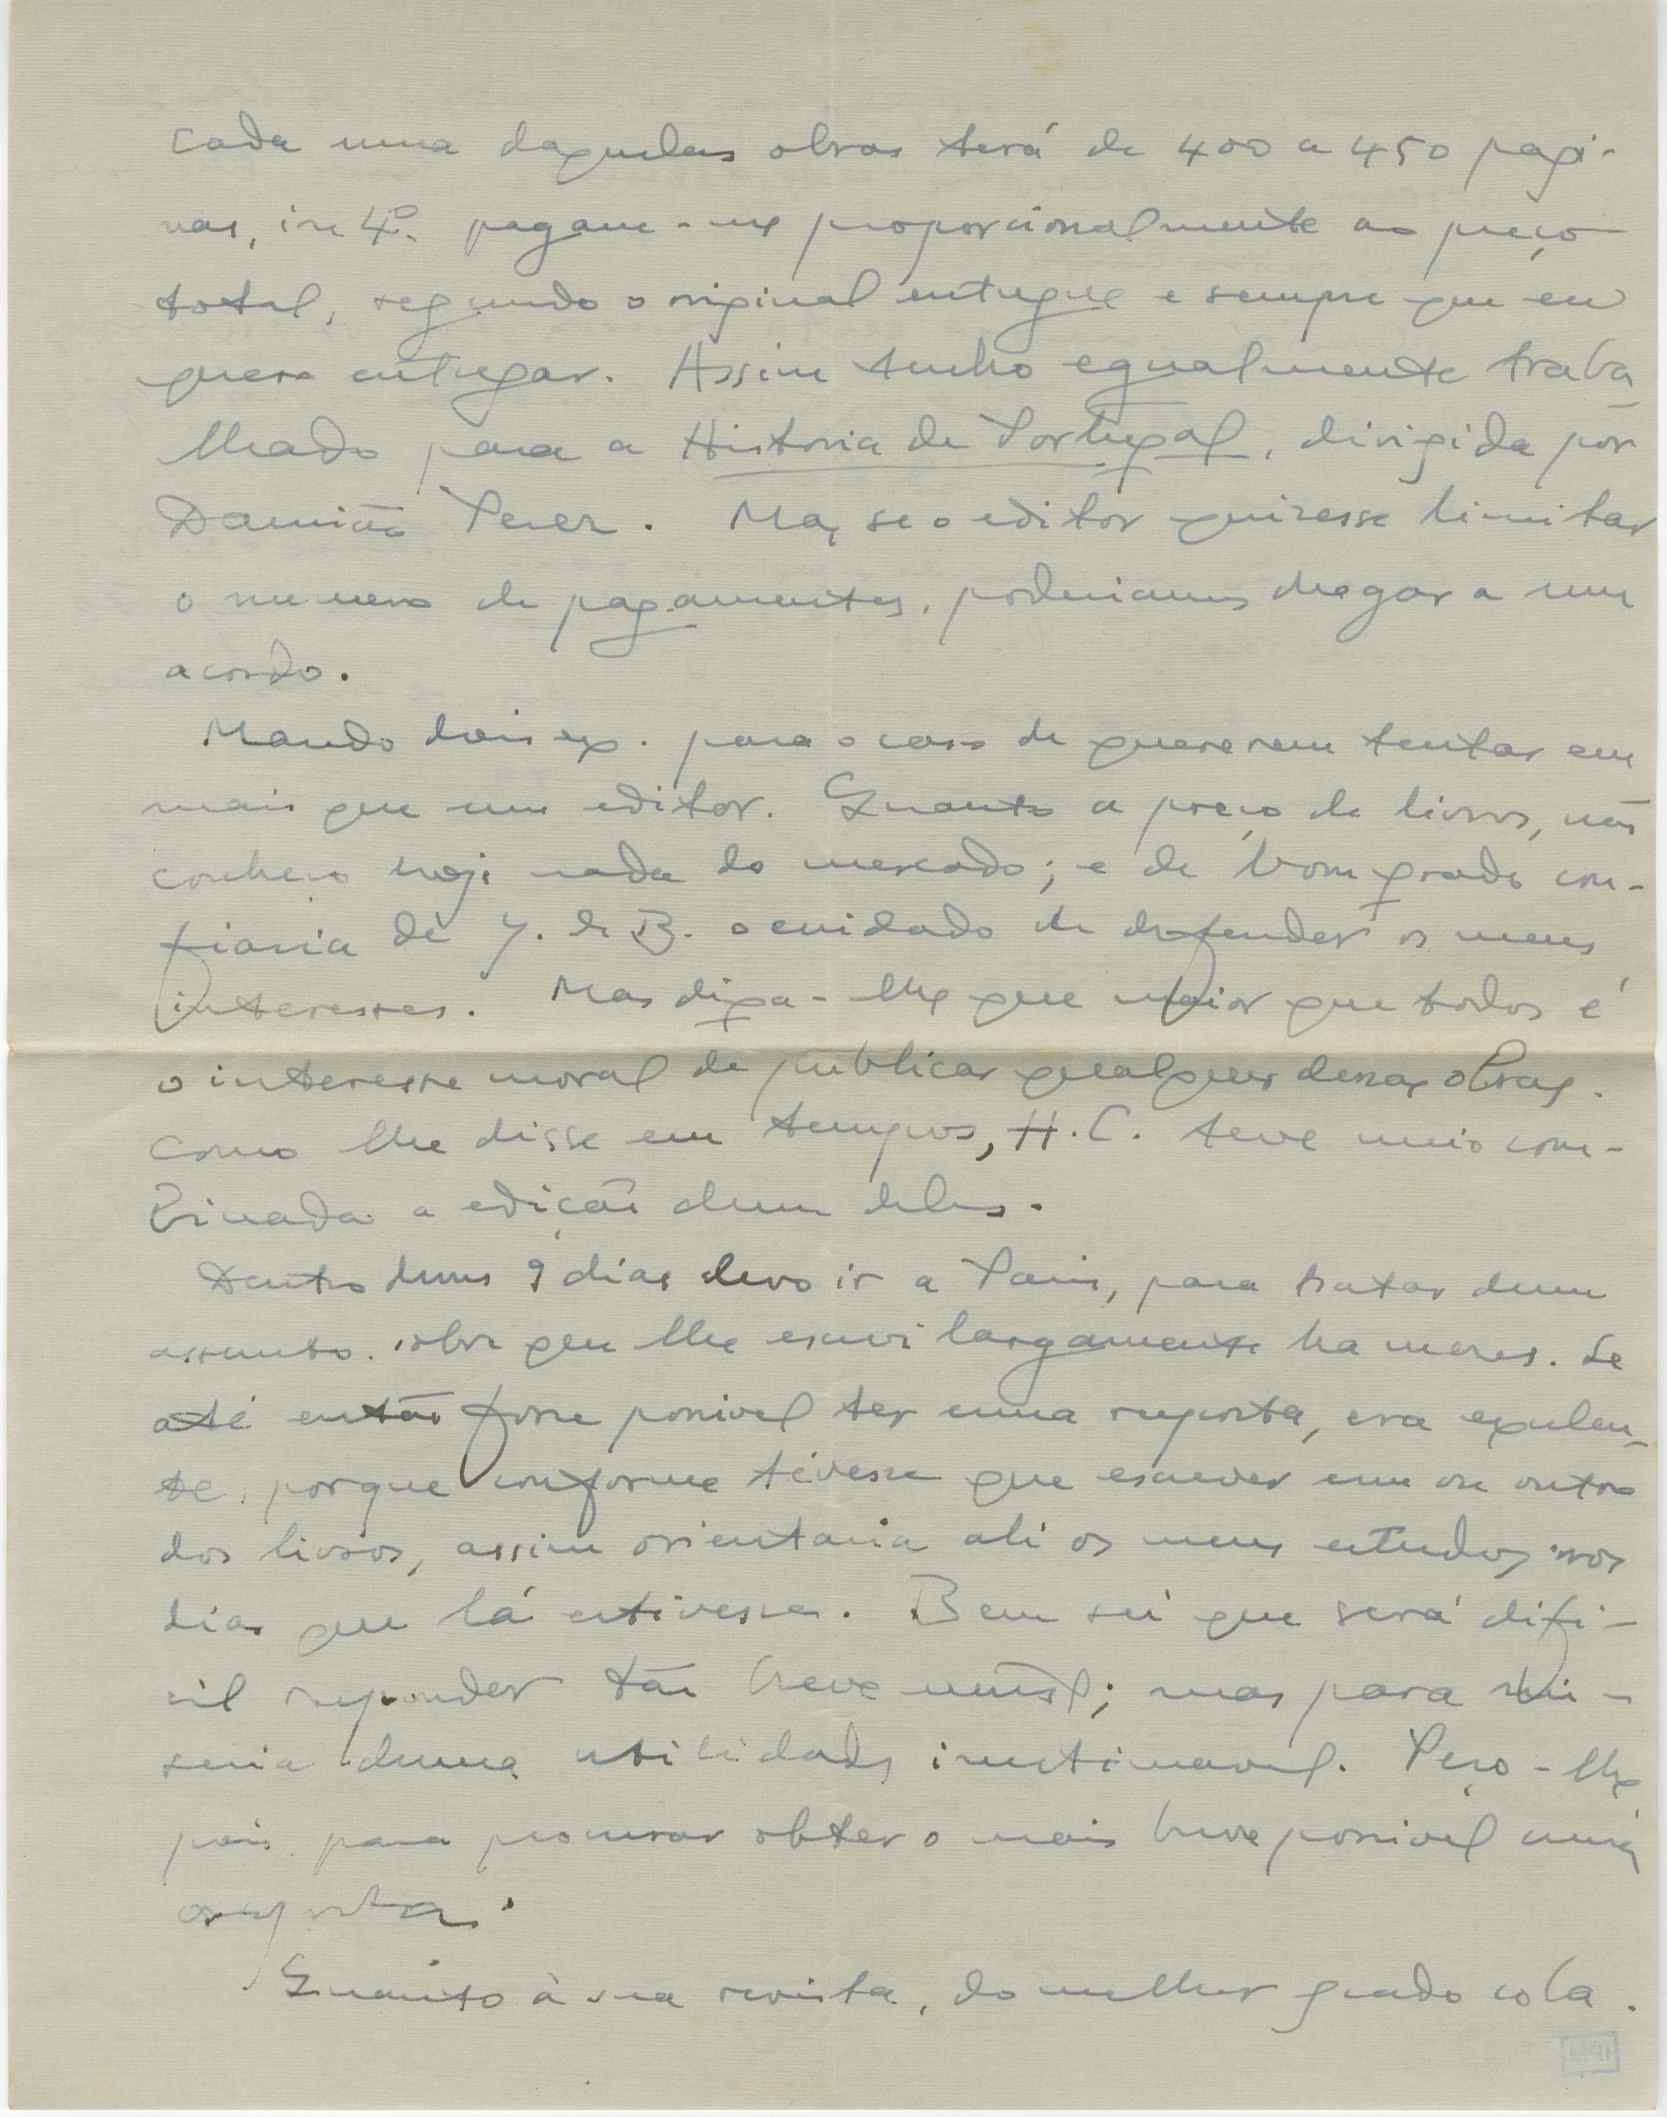 Cada uma daquelas obras terá de 400 a 450 pagi-
nas, in 4º. pagam-me proporcionalmente ao preço
total, segundo o original entregue e sempre que eu
quero entregar. Assim tenho egualmente traba-
lhado para a Historia de Portugal, dirigida por
Damião Perez. Mas se o editor quizesse limitar
o numero de pagamentos, poderiamos chegar a um
acordo.
Mando dois ex. para o caso de quererem tentar em
mais que um editor. Quanto a preço de livros, não
conheço hoje nada do mercado; e de bom grado con-
fiaria de J. de B. o cuidado de defender os meus
interesses. Mas diga-lhe que maior que todos é
o interesse moral de publicar qualquer dessas obras.
Como lhe disse em tempos, H.C. teve meio com-
binada a edição dum deles.
Dentro duns 9 dias devo ir a Paris, para tratar dum
assunto sobre que lhe escrevi largamente ha meses. Se
até então fosse possivel ter uma resposta, era excelen-
te, porque conforme tivesse que escrever um ou outro
dos livros, assim orientaria ali os meus estudos nos
dias que lá estivesse. Bem sei que será difi-
cil responder tão brevemente; mas para mim
seria duma utilidade inestimavel. Peço-lhe
pois para procurar obter o mais breve possivel uma
resposta.
Quanto à sua revista, do melhor grado cola-